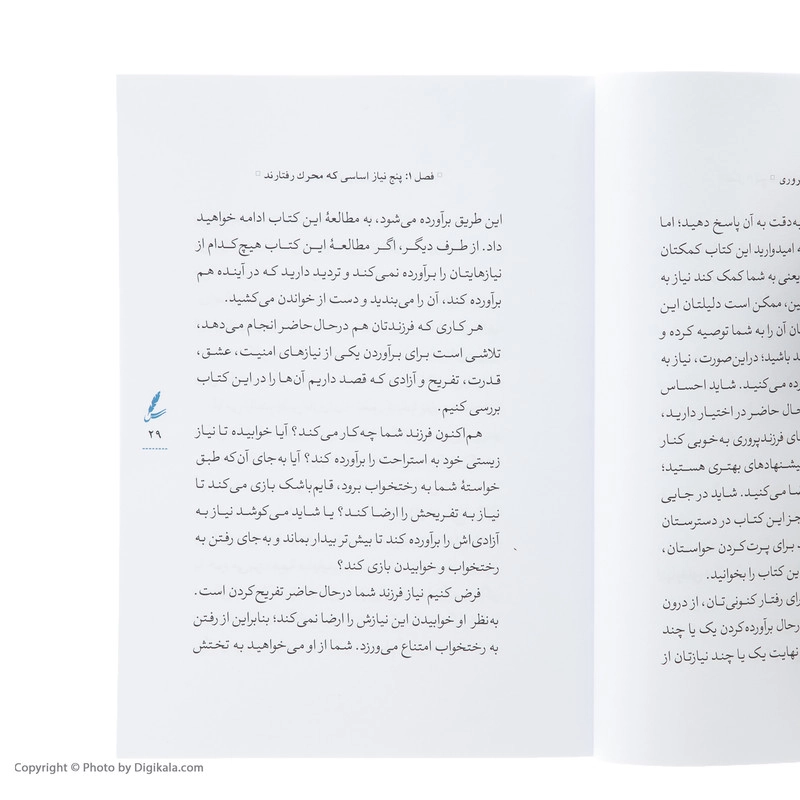 فصل ۱: پنج نیاز اساسی که محرک رفتارند
این طریق برآورده می‌شود، به مطالعهٔ این کتاب ادامه خواهید
داد. از طرف دیگر، اگر مطالعهٔ این کتاب هیچ‌کدام از
نیازهایتان را برآورده نمی‌کند و تردید دارید که در آینده هم
برآورده کند، آن را می‌بندید و دست از خواندن می‌کشید.
هر کاری که فرزندتان هم درحال‌حاضر انجام می‌دهد،
تلاشی است برای برآوردن یکی از نیازهای امنیت، عشق،
قدرت، تفریح و آزادی که قصد داریم آن‌ها را در این کتاب
بررسی کنیم.
هم‌اکنون فرزند شما چه‌کار می‌کند؟ آیا خوابیده تا نیاز
زیستی خود به استراحت را برآورده کند؟ آیا به‌جای آن‌که طبق
خواستهٔ شما به رختخواب برود، قایم‌باشک بازی می‌کند تا
نیاز به تفریحش را ارضا کند؟ یا شاید می‌کوشد نیاز به
آزادی‌اش را برآورده کند تا بیش‌تر بیدار بماند و به‌جای رفتن به
رختخواب و خوابیدن بازی کند؟
فرض کنیم نیاز فرزند شما درحال‌حاضر تفریح‌کردن است.
به‌نظر او خوابیدن این نیازش را ارضا نمی‌کند؛ بنابراین از رفتن
به رختخواب امتناع می‌ورزد. شما از او می‌خواهید به تختش
۲۹
به‌دقت به آن پاسخ دهید؛ اما
امیدوارید این کتاب کمکتان
یعنی به شما کمک کند نیاز به
ممکن است دلیلتان این
آن را به شما توصیه کرده و
باشید؛ دراین‌صورت، نیاز به
می‌کنید. شاید احساس
حاضر در اختیار دارید،
فرزندپروری به‌خوبی کنار
پیشنهادهای بهتری هستید؛
می‌کنید. شاید در جایی
جز این کتاب در دسترستان
برای پرت‌کردن حواستان،
این کتاب را بخوانید.
رفتار کنونی‌تان، از درون
برآورده‌کردن یک یا چند
نهایت یک یا چند نیازتان از
Copyright © Photo by Digikala.com